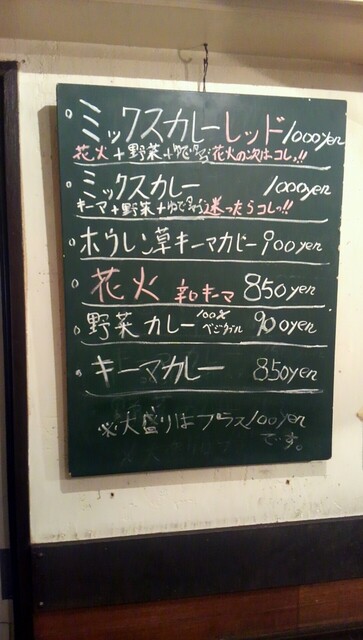 ミックスカレーレッド 1000yen
花火+野菜+ゆで卵 花火の次はコレっ!!
ミックスカレー 1000yen
キーマ+野菜+ゆで卵 迷ったらコレっ!!
ホウレン草キーマカレー 900yen
花火 辛口キーマ 850yen
野菜カレー 100% ベジタブル 900yen
キーマカレー 850yen
※大盛りはプラス100yen
です。